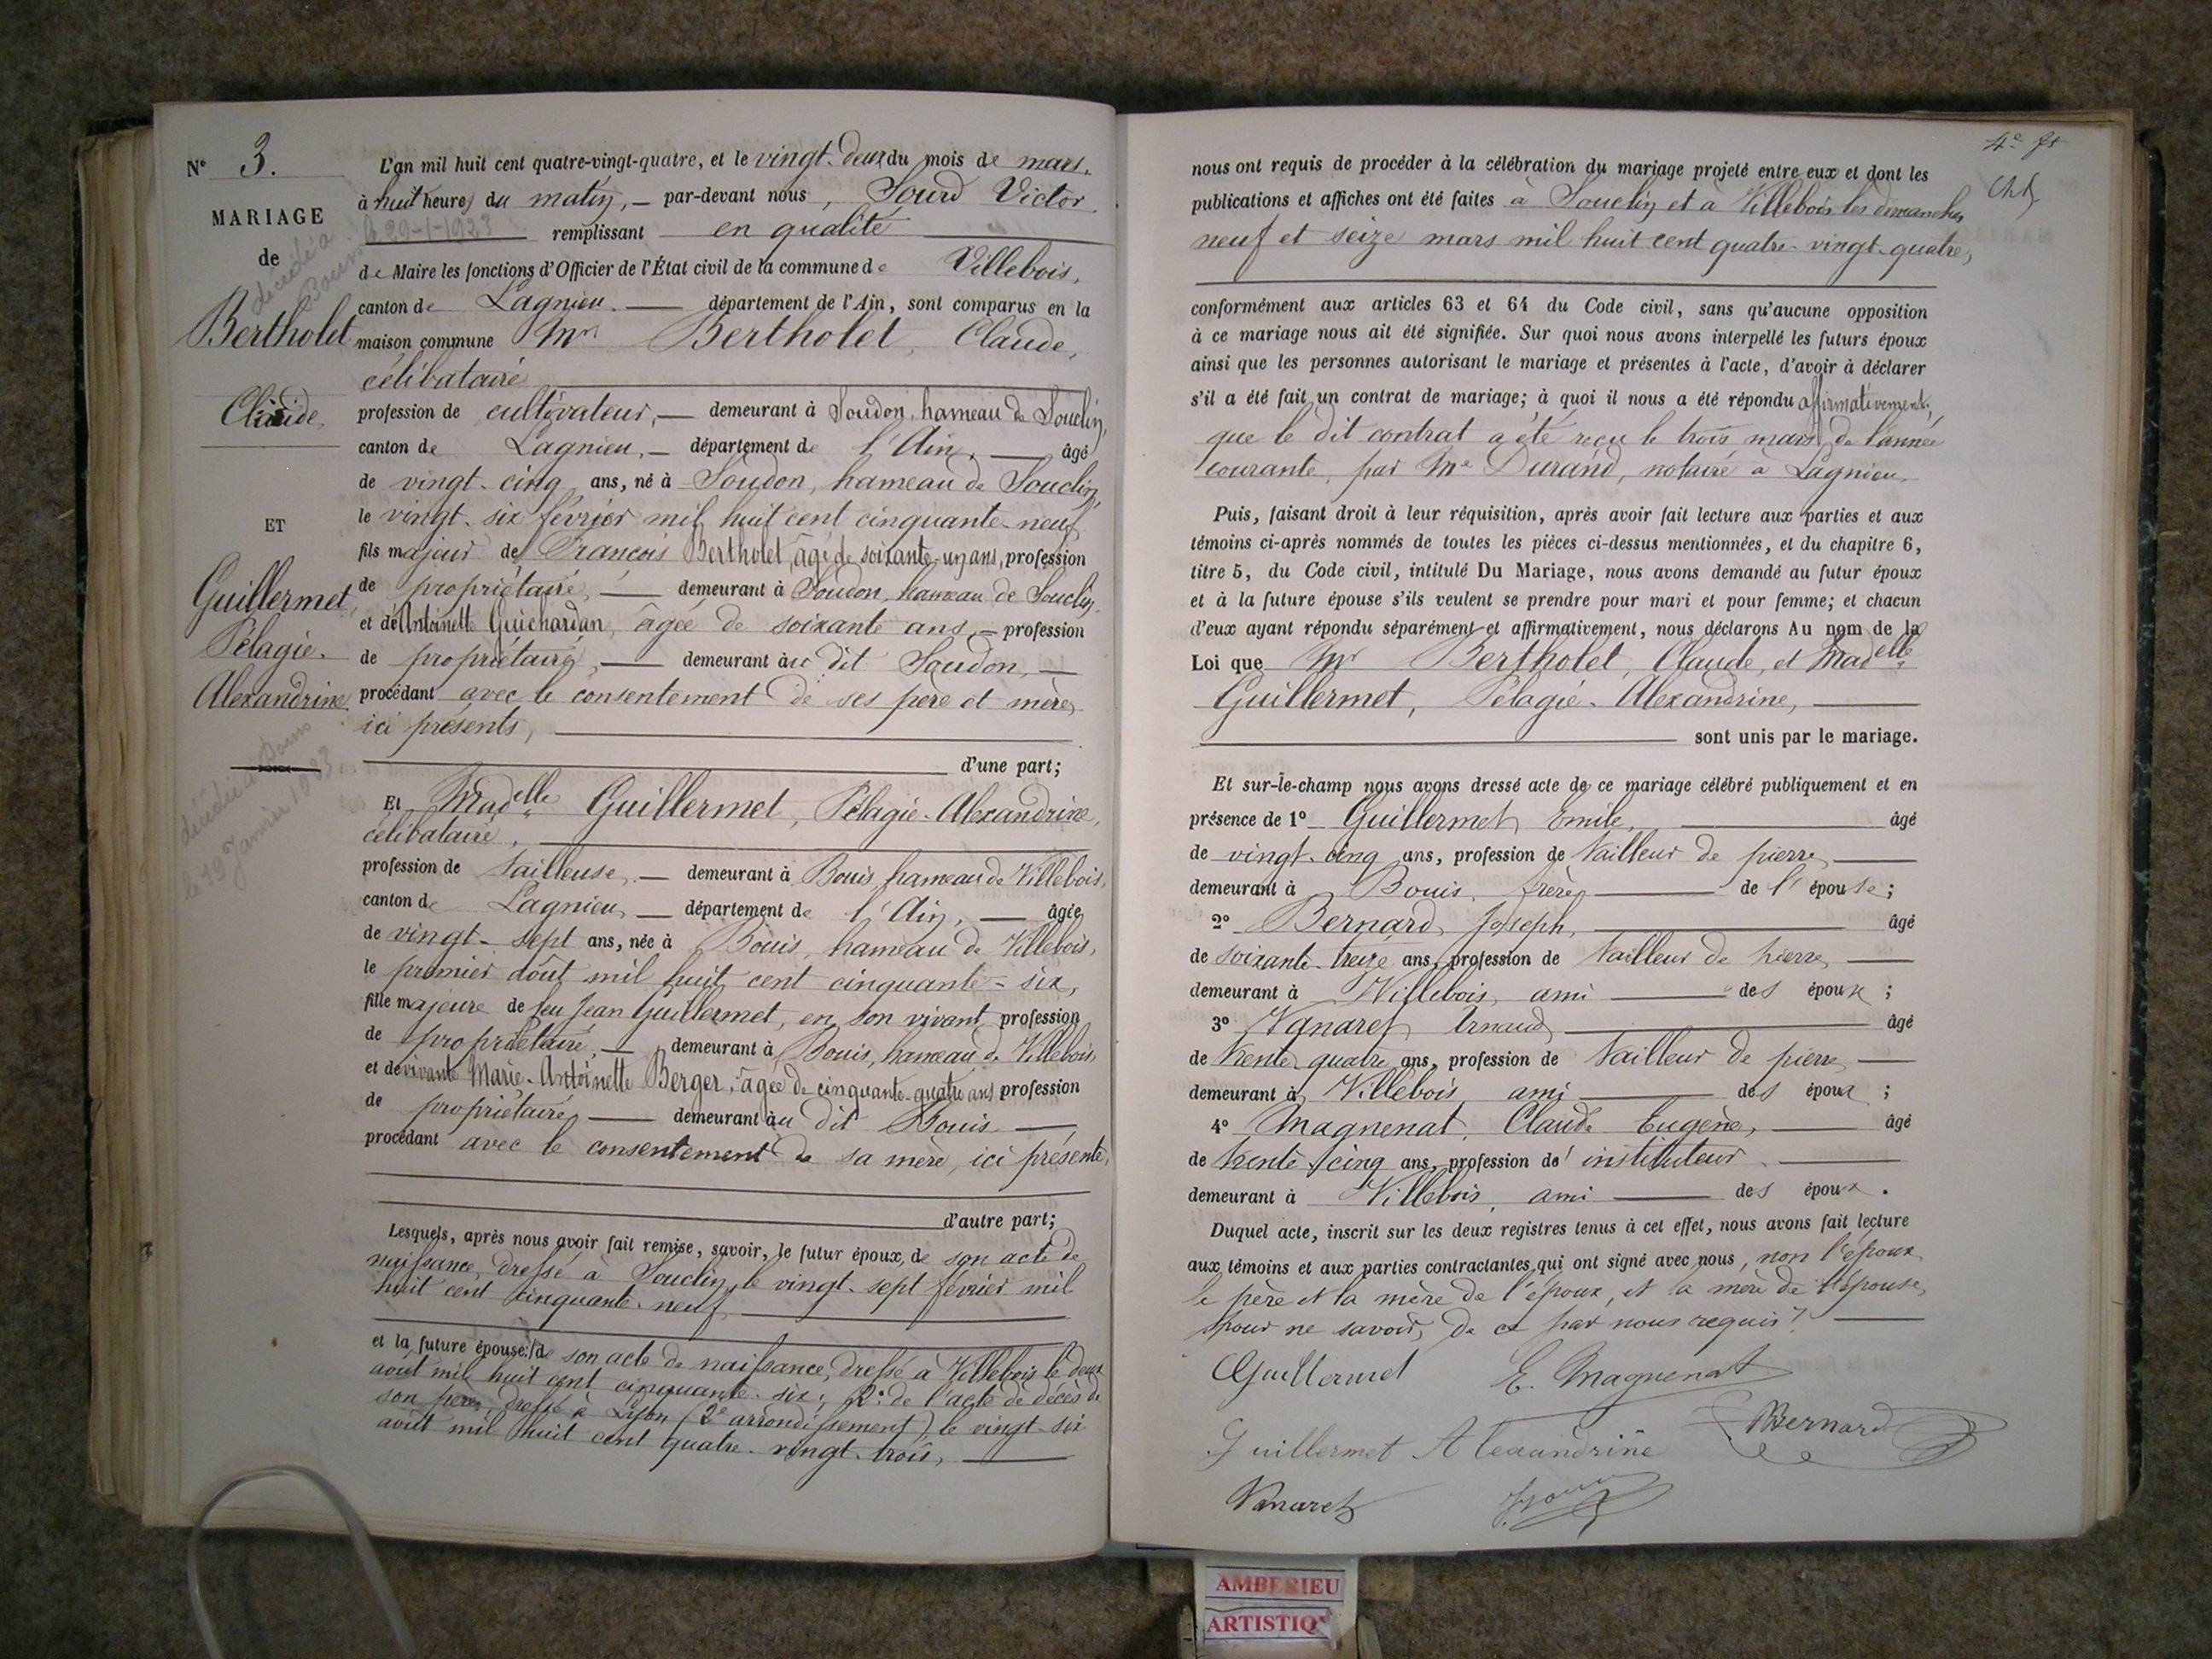 N° 3.
MARIAGE
de
Bertholet
Claude,
ET
Guillermet,
Pélagie-
Alexandrine
décédé à
Bouis
le 29-1-1923
décédée à Bouis
le 19 Janvier 1923
L'an mil huit cent quatre-vingt-quatre, et le vingt-deux du mois de mars,
à huit heures du matin, — par-devant nous, Sourd Victor,
remplissant en qualité
de Maire les fonctions d'Officier de l'État civil de la commune de Villebois,
canton de Lagnieu — département de l'Ain, sont comparus en la
maison commune Mr Bertholet, Claude,
célibataire
profession de cultivateur, — demeurant à Soudon, hameau de Souclin,
canton de Lagnieu, — département de l'Ain, — âgé
de vingt-cinq ans, né à Soudon, hameau de Souclin,
le vingt-six février mil huit cent cinquante-neuf
fils majeur de François Bertholet, âgé de soixante-un ans, profession
de propriétaire, — demeurant à Soudon, hameau de Souclin,
et de Antoinette Guichardan, âgée de soixante ans, — profession
de propriétaire, — demeurant au dit Soudon, —
procédant avec le consentement de ses père et mère,
ici présents,
d'une part;
Et Madelle Guillermet, Pélagie-Alexandrine,
célibataire,
profession de tailleuse, — demeurant à Bouis, hameau de Villebois,
canton de Lagnieu, — département de l'Ain, — âgée
de vingt-sept ans, née à Bouis, hameau de Villebois,
le premier août mil huit cent cinquante-six,
fille majeure de feu Jean Guillermet, en son vivant, profession
de propriétaire, — demeurant à Bouis, hameau de Villebois
et de vivante Marie-Antoinette Berger, âgée de cinquante-quatre ans, profession
de propriétaire, — demeurant au dit Bouis —,
procédant avec le consentement de sa mère, ici présente,
d'autre part;
Lesquels, après nous avoir fait remise, savoir, le futur époux, de son acte de
naissance, dressé à Souclin, le vingt-sept février mil
huit cent cinquante-neuf,
et la future épouse: de son acte de naissance, dressé à Villebois le deux
août mil huit cent cinquante-six; 2° de l'acte de décès de
son père, dressé à Lyon (2e arrondissement), le vingt-six
août mil huit cent quatre-vingt-trois, —
nous ont requis de procéder à la célébration du mariage projeté entre eux et dont les
publications et affiches ont été faites à Souclin et à Villebois les dimanches
neuf et seize mars mil huit cent quatre-vingt-quatre,
conformément aux articles 63 et 64 du Code civil, sans qu'aucune opposition
à ce mariage nous ait été signifiée. Sur quoi nous avons interpellé les futurs époux
ainsi que les personnes autorisant le mariage et présentes à l'acte, d'avoir à déclarer
s'il a été fait un contrat de mariage; à quoi il nous a été répondu affirmativement,
que le dit contrat a été reçu le trois mars de l'année
courante, par Me Durand, notaire à Lagnieu.
Puis, faisant droit à leur réquisition, après avoir fait lecture aux parties et aux
témoins ci-après nommés de toutes les pièces ci-dessus mentionnées, et du chapitre 6,
titre 5, du Code civil, intitulé Du Mariage, nous avons demandé au futur époux
et à la future épouse s'ils veulent se prendre pour mari et pour femme; et chacun
d'eux ayant répondu séparément et affirmativement, nous déclarons Au nom de la
Loi que Mr Bertholet, Claude, et Madelle
Guillermet, Pélagie-Alexandrine,
sont unis par le mariage.
Et sur-le-champ nous avons dressé acte de ce mariage célébré publiquement et en
présence de 1° Guillermet, Emile, âgé
de vingt-cinq ans, profession de tailleur de pierre, —
demeurant à Bouis, frère — de l'épouse;
2° Bernard, Joseph, âgé
de soixante-treize ans, profession de tailleur de pierre, —
demeurant à Villebois, ami — des époux;
3° Vanaret, Arnaud, âgé
de trente-quatre ans, profession de tailleur de pierre, —
demeurant à Villebois, ami — des époux;
4° Magnenat, Claude Eugène, — âgé
de trente-cinq ans, profession de instituteur —
demeurant à Villebois, ami — des époux.
Duquel acte, inscrit sur les deux registres tenus à cet effet, nous avons fait lecture
aux témoins et aux parties contractantes qui ont signé avec nous, non l'époux
le père et la mère de l'époux, et la mère de l'épouse,
pour ne savoir, de ce par nous requis.
Guillermet E. Magnenat
Guillermet Alexandrine Bernard
Vanaret
AMBERIEU
ARTISTIQ